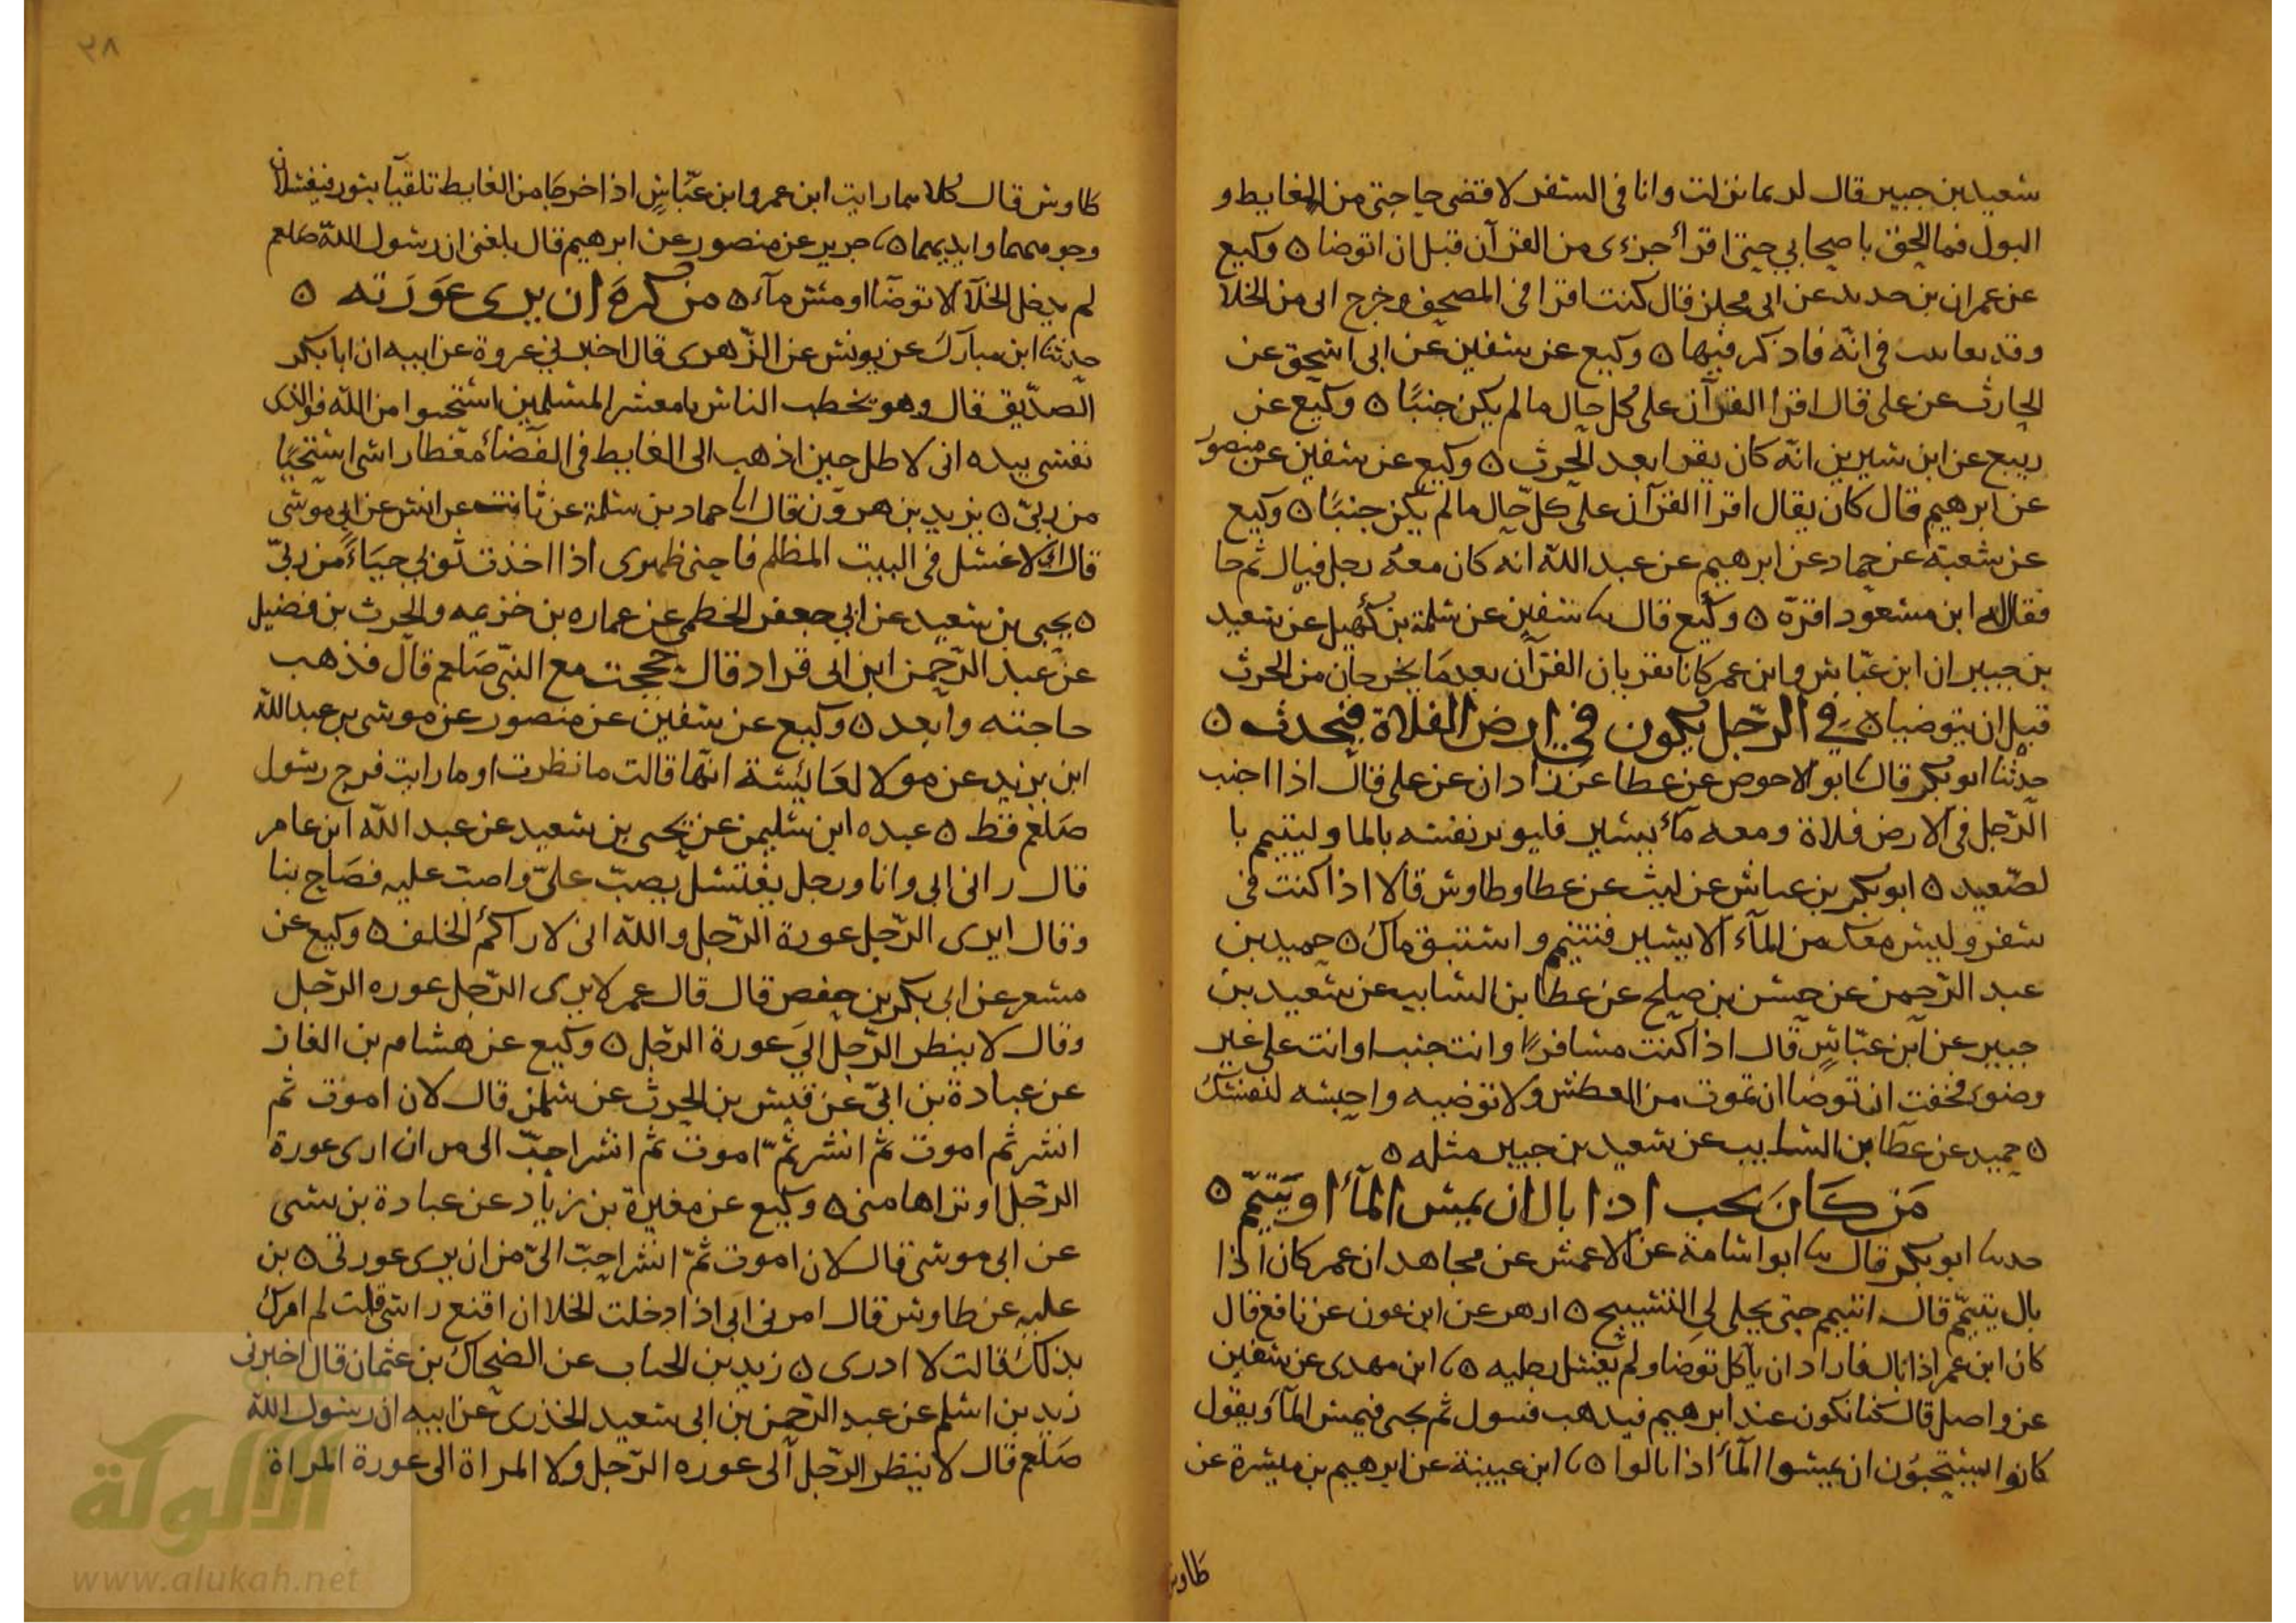 شعيد بن جبير قال لربما نزلت وانا في السفر لاقضى حاجتى من الغايط و
البول فما الحق باصحابي حتى اقرأ جزءى من القرآن قبل ان اتوضا ه وكيع
عن عمران بن حدير عن ابى مجلز قال كنت اقرا في المصحف وخرج ابى من الخلا
وقد في انّه فاذكر فيها ه وكيع عن سفين عن ابى اسحق عن
الحارث عن على قال اقرا القرآن على كل حال ما لم يكن جنبًا ه وكيع عن
ربيع عن ابن سيرين انّه كان يقرا بعد الحرث ه وكيع عن سفين عن منصور
عن ابرهيم قال كان يقال اقرا القرآن على كلّ حال ما لم يكن جنبًا ه وكيع
عن شعبة عن حماد عن ابرهيم عن عبد الله انه كان معه رجل فبال ثم جا
فقال له ابن مسعود اقرّه ه وكيع قال سا سفين عن سلمة بن كهيل عن سعيد
بن جبير ان ابن عبّاس وابن عمر كانا يقريان القرآن بعد ما يخرجان من الحرث
قبل ان يتوضيا ه في الرّجل يكون في ارض الفلاة فيحدث ه
حدثنا ابو بكر قال سا ابو الاحوص عن عطا عن زاذان عن على قال اذا اجنب
الرّجل في الارض فلاة ومعه مآء يسير فليوثر نفسه بالما وليتيمم با
لصّعيد ه ابو بكر بن عياش عن ليث عن عطا وطاوس قالا اذا كنت فى
سفر وليس معك من المآء الا يسير فتتيمم واستبق ماك ه حميد بن
عبد الرّحمن عن حسن بن صلح عن عطا بن السايب عن سعيد بن
جبير عن ابن عبّاس قال اذا كنت مسافرًا وانت جنب او انت على غير
وضوء فخفت ان توضا ان تموت من العطش ولا توضيه واحبسه لنفسك
ه حميد عن عطا بن السايب عن سعيد بن جبير مثله ه
مَن كَانَ يحب اذا بال ان يمس المآء او يَتيمّم ه
حدسا ابو بكر قال سا ابو اسامة عن الاعمش عن مجاهد ان عمر كان اذا
بال تيمّم قال اتيمم حتى يحلى لى التسبيح ه ازهر عن ابن عون عن نافع قال
كان ابن عمر اذا بال فاراد ان يأكل توضا ولم يغسل رجليه ه سا ابن مهدى عن سفين
عن واصل قال كنا نكون عند ابرهيم فيذهب فيبول ثم يجى فيمس المآء ويقول
كانوا يستحبّون ان يمسوا المآء اذا بالوا ه سا ابن عيينة عن ابرهيم بن ميسرة عن
طاوس
٣٨
طاوس قال كلاهما رايت ابن عمر وابن عبّاسٍ اذا خرجا من الغايط تلقيا بتور فيغسلان
وجوههما وايديهما ه سا جرير عن منصور عن ابرهيم قال بلغنى ان رسول الله صَلعم
لم يدخل الخلآء الا توضّا او مسّ مآء ه من كَرهَ ان يرى عَوَرَته ه
حدثنا ابن مبارك عن يونس عن الزّهرى قال اخبرني عروة عن ابيه ان ابا بكر
الصدّيق قال وهو يخطب الناس يا معشر المسلمين استحيوا من الله فوالذى
نفسى بيده انى لاظل حين اذهب الى الغايط في الفضآء مغطا راسى استحيًا
من ربّي ه يزيد بن هرون قال انا حماد بن سلمة عن ثابت عن انس عن ابى موسى
قال انى لاغتسل في البيت المظلم فاحنى ظهرى اذا اخذت ثوبى حياءً من ربّي
ه يحيى بن سعيد عن ابي جعفر الخطمى عن عماره بن خزيمه والحرث بن فضيل
عن عبد الرّحمن ابن ابى قراد قال حججت مع النبّى صَلعم قال فذهب
حاجته وابعد ه وكيع عن سفين عن منصور عن موسى بن عبد الله
ابن يزيد عن مولا لعَائِشة انّها قالت ما نظرت او ما رايت فرج رسول
صَلعم قط ه عبده ابن سليمن عن يحيى بن سعيد عن عبد الله ابن عامر
قال رانى ابى وانا ورجل يغتسل يصبّ علىّ واصبّ عليه فصَاح بنا
وقال ايرى الرّجل عورة الرّجل والله انى لاراكم الخلف ه وكيع عن
مسعر عن ابى بكر بن حفص قال قال عمر لا يرى الرّجل عوره الرّجل
وقال لا ينظر الرّجل الى عورة الرّجل ه وكيع عن هشام بن الغاز
عن عبادة بن ابىّ عن قيس بن الحرث عن سلمن قال لان اموت ثم
انشر ثم اموت ثم انشر ثمّ اموت ثم انشر احبّ الى من ان ارى عورة
الرّجل او يراها منى ه وكيع عن مغيرة بن زياد عن عبادة بن نسى
عن ابى موسى قال لان اموت ثمّ انشر احبّ الىّ من ان يرى عورتى ه بن
عليه عن طاوس قال امرنى ابى اذا دخلت الخلا ان اقنع راسى قلت لم امرك
بذلك قالت لا ادرى ه زيد بن الحباب عن الضحاك بن عثمان قال اخبرنى
زيد بن اسلم عن عبد الرّحمن بن ابى سعيد الخدرى عن ابيه ان رسول الله
صَلعم قال لا ينظر الرّجل الى عوره الرّجل ولا المراة الى عورة المراة
شبكة
الألوكة
www.alukah.net